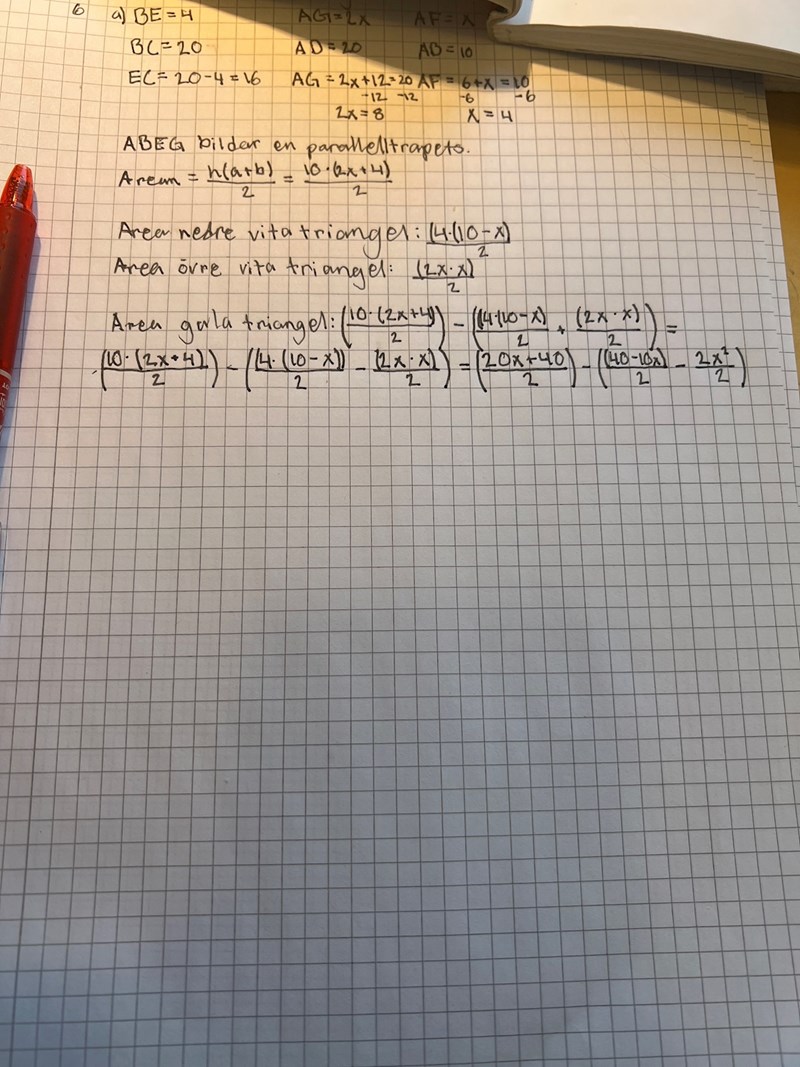 6 a) BE = 4 AG = 2x AF = x
BC = 20 AD = 20 AB = 10
EC = 20-4 = 16 AG = 2x+12=20 AF = 6+x = 10
-12 -12 -6 -6
2x = 8 x = 4
ABEG bildar en parallelltrapets.
Arean = h(a+b)/2 = 10·(2x+4)/2
Area nedre vita triangel: (4·(10-x)/2
Area övre vita triangel: (2x·x)/2
Area gula triangel: (10·(2x+4)/2) - ((4·(10-x)/2 + (2x·x)/2) =
((10·(2x+4))/2) - ((4·(10-x))/2 - (2x·x)/2) = (20x+40/2) - ((40-10x)/2 - 2x²/2)